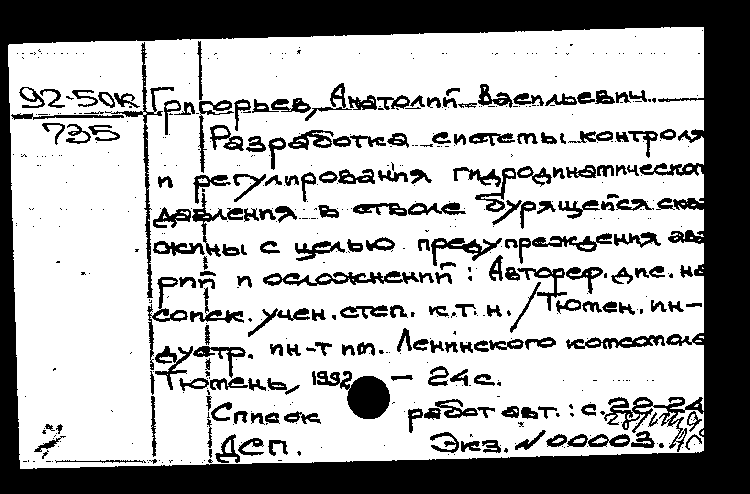 92-50к Григорьев, Анатолий Васильевич.
735 Разработка системы контроля
и регулирования гидродинамическо
давления в стволе бурящейся сква
жины с целью предупреждения ава
рий и осложнений: Автореф. дис. на
соиск. учен. степ. к.т.н. / Тюмен. ин-
дустр. ин-т им. Ленинского комсомола
Тюмень, 1992 – 24с.
Список работ авт.: с. 20-24
ДСП. Экз. N 00003.